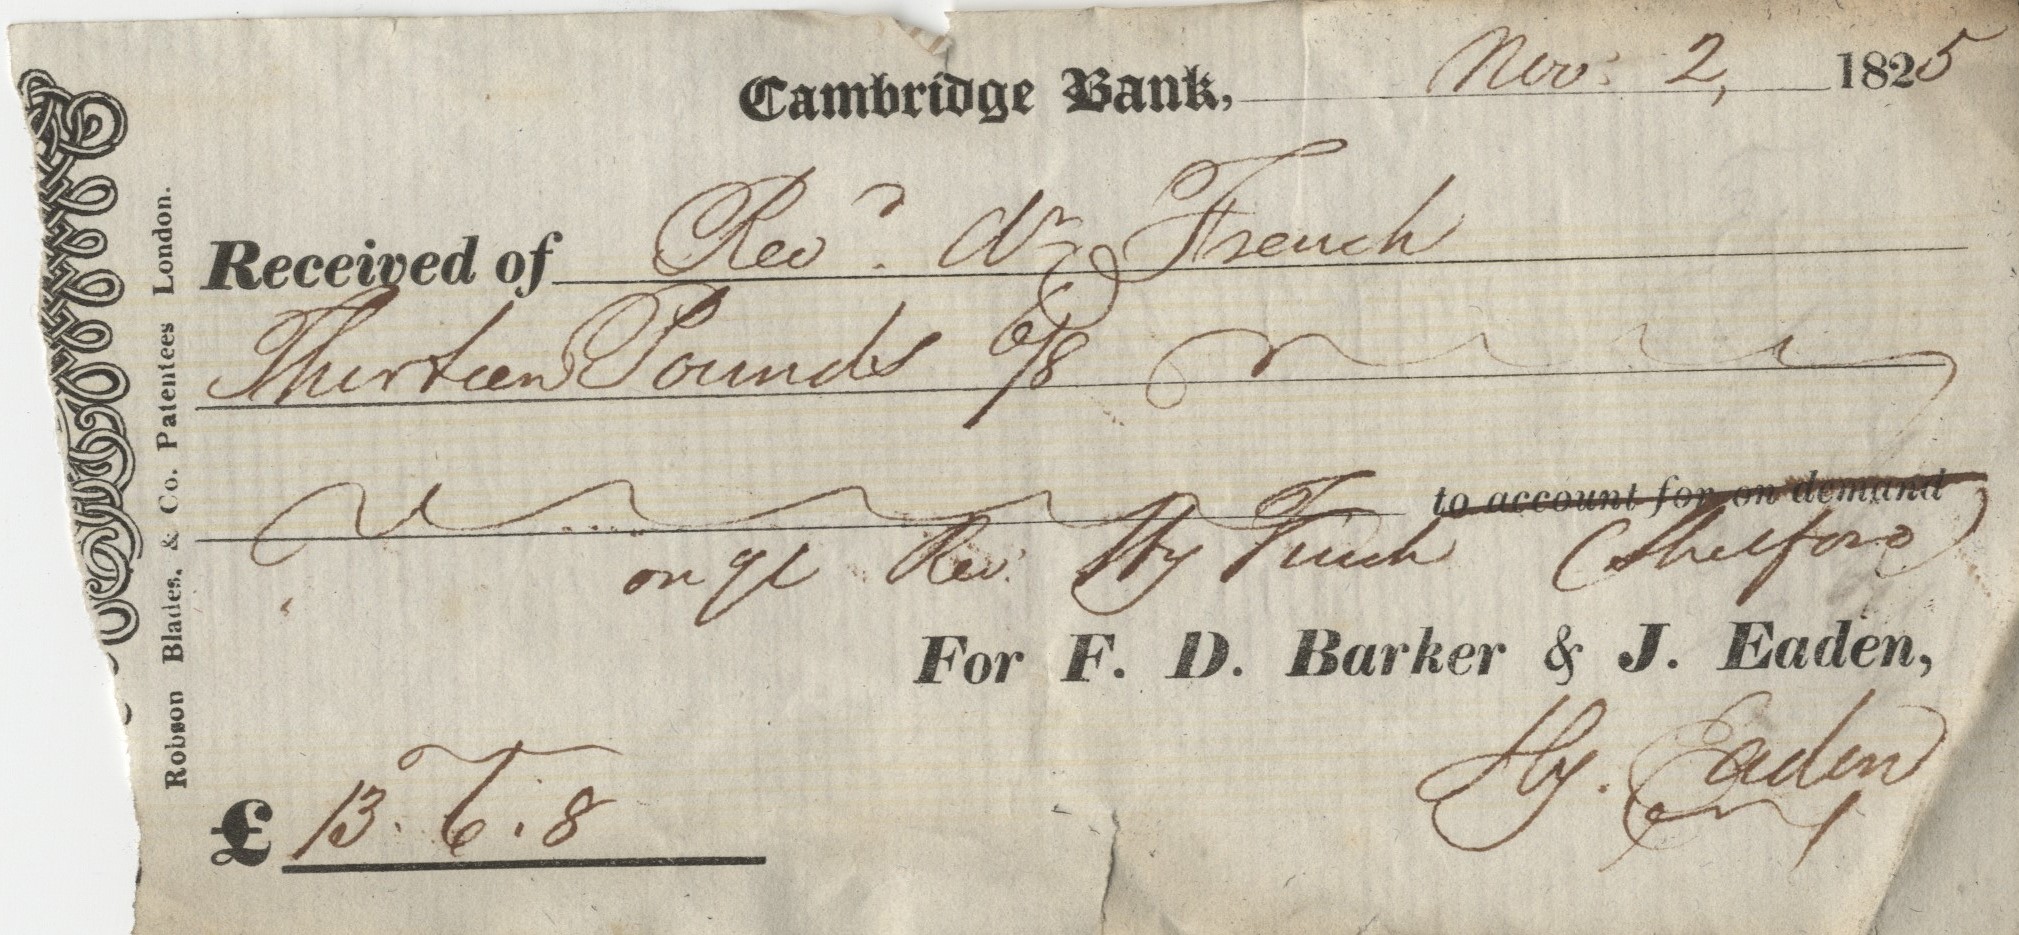 Cambridge Bank, Nov: 2, 1825
Received of Revd. Dr French
Thirteen Pounds 6/8
to account for on demand
on Rev. Hy Finch (Shelford)
For F. D. Barker & J. Eaden,
Hy. Eaden
£ 13. 6. 8
Robson Blades, & Co. Patentees London.